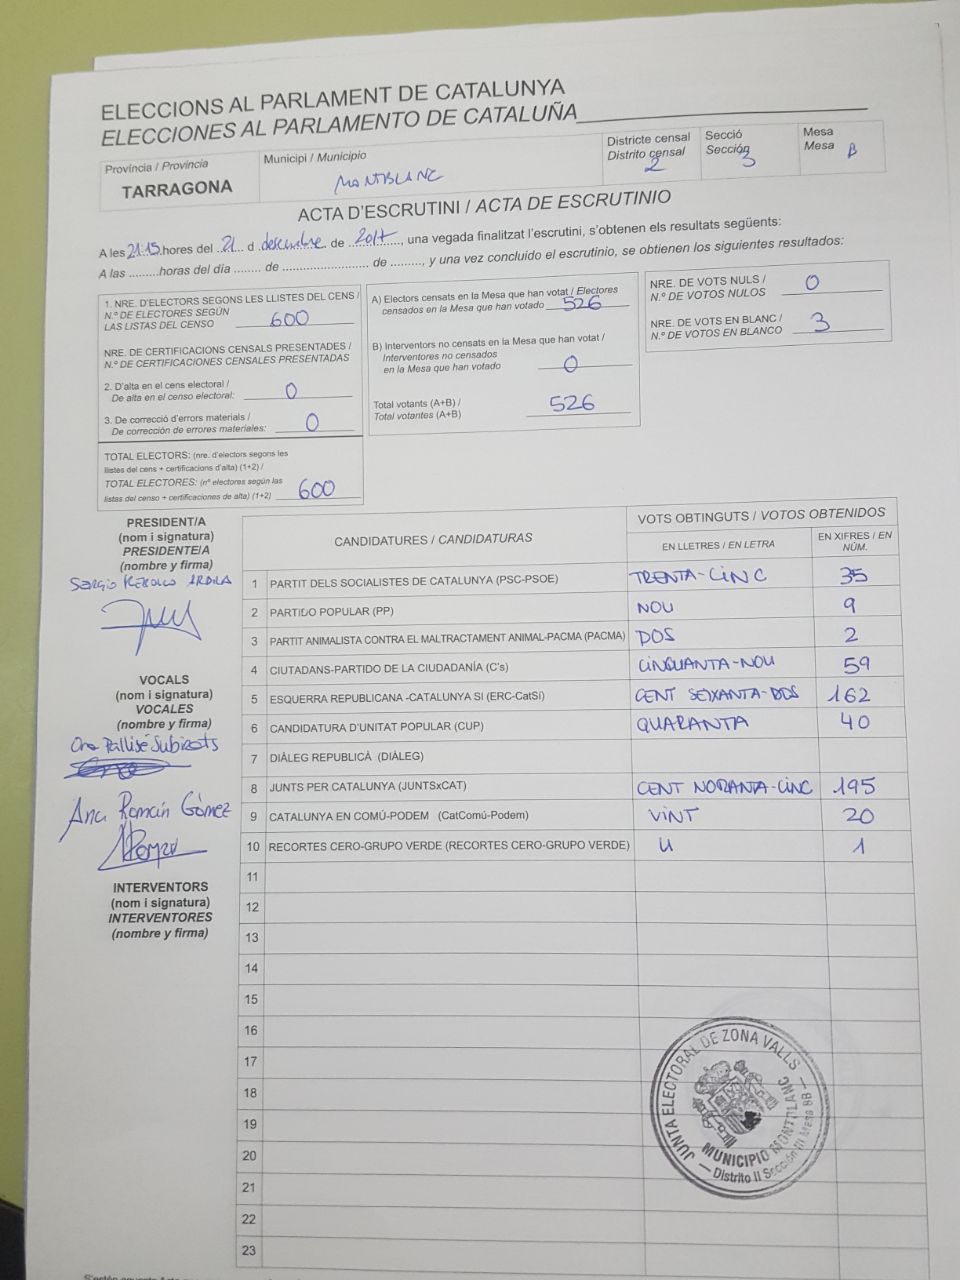 ELECCIONS AL PARLAMENT DE CATALUNYA
ELECCIONES AL PARLAMENTO DE CATALUÑA
Provincia / Provincia
TARRAGONA
Municipi / Municipio
MONTBLANC
Districte censal
Distrito censal
2
Secció
Sección
3
Mesa
Mesa B
ACTA D'ESCRUTINI / ACTA DE ESCRUTINIO
A les 21:15 hores del 21 d desembre de 2017, una vegada finalitzat l'escrutini, s'obtenen els resultats següents:
A las .........horas del día ........ de ......................... de ........, y una vez concluido el escrutinio, se obtienen los siguientes resultados:
1. NRE. D'ELECTORS SEGONS LES LLISTES DEL CENS /
N.º DE ELECTORES SEGÚN
LAS LISTAS DEL CENSO 600
NRE. DE CERTIFICACIONS CENSALS PRESENTADES /
N.º DE CERTIFICACIONES CENSALES PRESENTADAS
2. D'alta en el cens electoral /
De alta en el censo electoral: 0
3. De correcció d'errors materials /
De corrección de errores materiales: 0
TOTAL ELECTORS: (nre. d'electors segons les
llistes del cens + certificacions d'alta) (1+2) /
TOTAL ELECTORES: (nº electores según las
listas del censo + certificaciones de alta) (1+2) 600
A) Electors censats en la Mesa que han votat / Electores
censados en la Mesa que han votado 526
B) Interventors no censats en la Mesa que han votat /
Interventores no censados
en la Mesa que han votado 0
Total votants (A+B) /
Total votantes (A+B) 526
NRE. DE VOTS NULS /
N.º DE VOTOS NULOS 0
NRE. DE VOTS EN BLANC /
N.º DE VOTOS EN BLANCO 3
PRESIDENT/A
(nom i signatura)
PRESIDENTE/A
(nombre y firma)
VOCALS
(nom i signatura)
VOCALES
(nombre y firma)
Ana Román Gómez
INTERVENTORS
(nom i signatura)
INTERVENTORES
(nombre y firma)
CANDIDATURES / CANDIDATURAS
VOTS OBTINGUTS / VOTOS OBTENIDOS
EN LLETRES / EN LETRA
EN XIFRES / EN
NÚM.
1 PARTIT DELS SOCIALISTES DE CATALUNYA (PSC-PSOE) TRENTA-CINC 35
2 PARTIDO POPULAR (PP) NOU 9
3 PARTIT ANIMALISTA CONTRA EL MALTRACTAMENT ANIMAL-PACMA (PACMA) DOS 2
4 CIUTADANS-PARTIDO DE LA CIUDADANÍA (C's) CINQUANTA-NOU 59
5 ESQUERRA REPUBLICANA -CATALUNYA SI (ERC-CatSí) CENT SEIXANTA-DOS 162
6 CANDIDATURA D'UNITAT POPULAR (CUP) QUARANTA 40
7 DIÀLEG REPUBLICÀ (DIÀLEG)
8 JUNTS PER CATALUNYA (JUNTSxCAT) CENT NORANTA-CINC 195
9 CATALUNYA EN COMÚ-PODEM (CatComú-Podem) VINT 20
10 RECORTES CERO-GRUPO VERDE (RECORTES CERO-GRUPO VERDE) U 1
11
12
13
14
15
16
17
18
19
20
21
22
23
JUNTA ELECTORAL DE ZONA VALLS
MUNICIPIO MONTBLANC
Distrito II Sección III Mesa BB